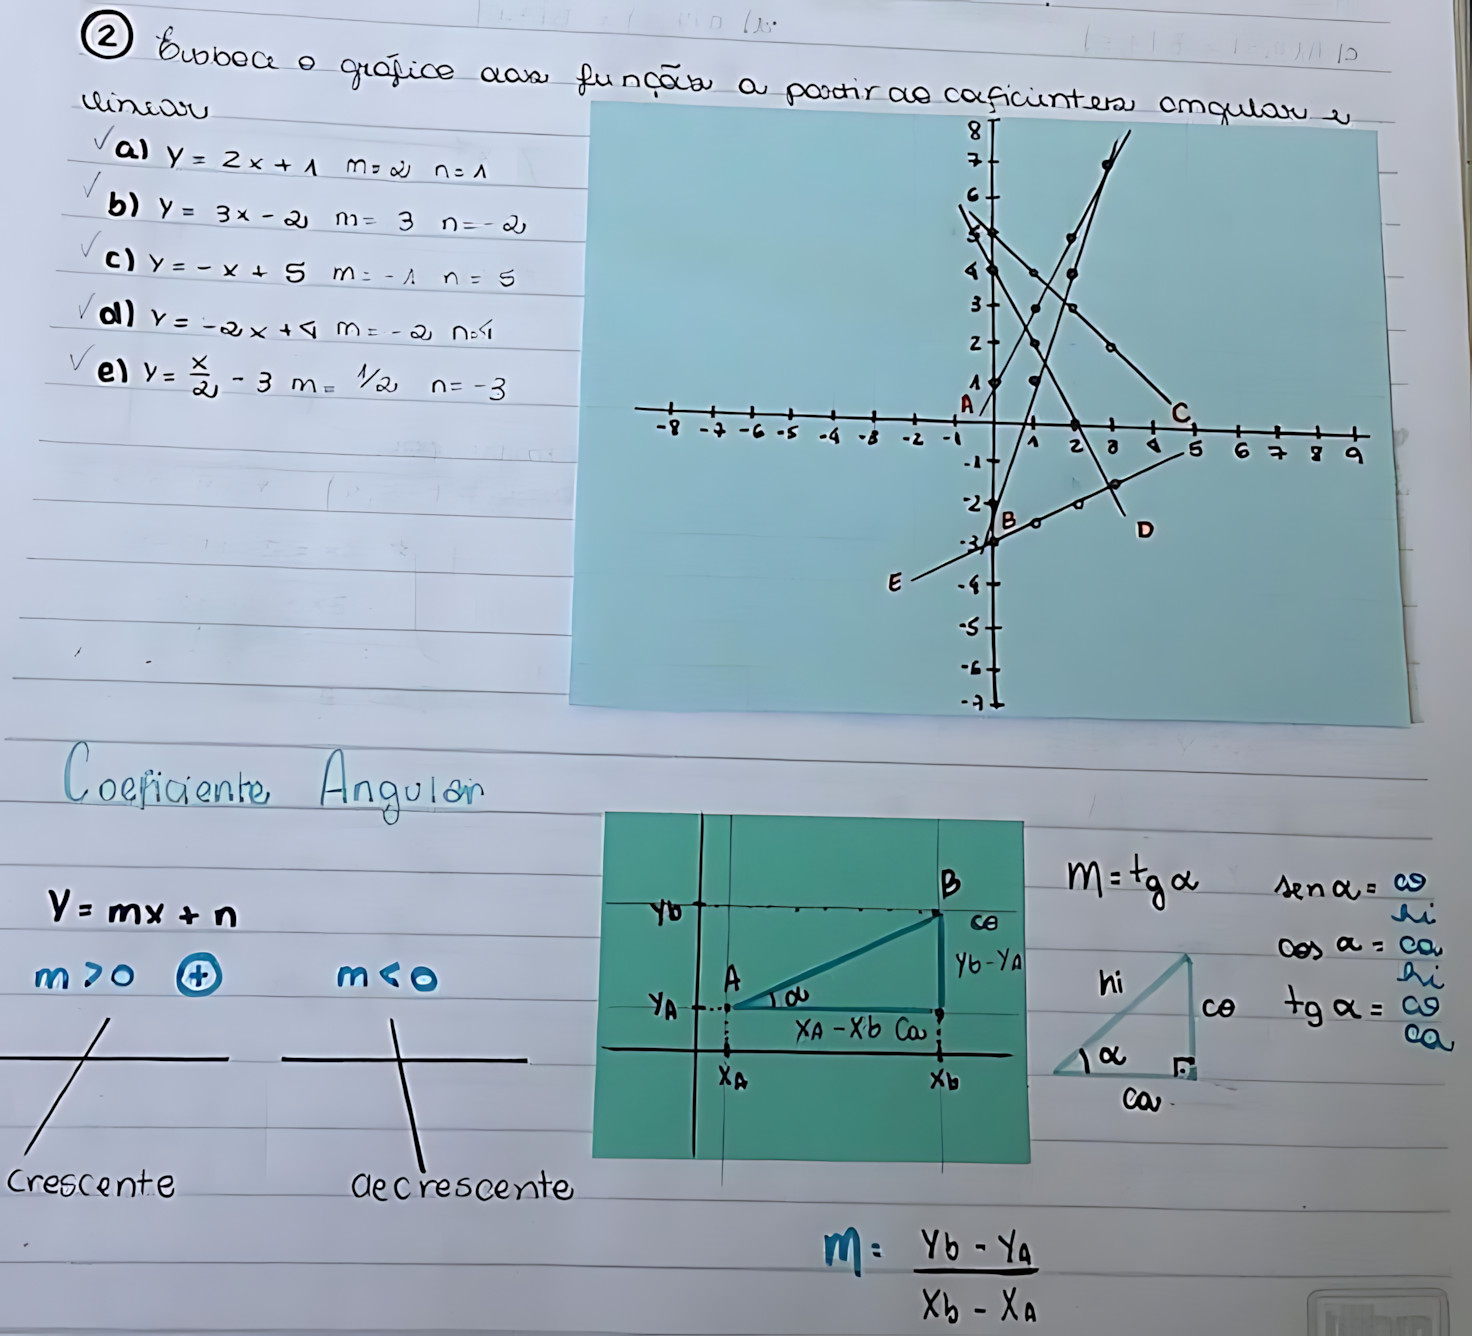 ② Esboce o gráfico das funções a partir do coeficientes angular e
linear
✓ a) y = 2x + 1 m = 2 n = 1
✓ b) y = 3x - 2 m = 3 n = -2
✓ c) y = -x + 5 m = -1 n = 5
✓ d) y = -2x + 4 m = -2 n=4
✓ e) y = x/2 - 3 m = 1/2 n = -3
8
7
6
5
4
3
2
1
A
C
-8 -7 -6 -5 -4 -3 -2 -1 1 2 3 4 5 6 7 8 9
-1
-2
B
D
-3
E
-4
-5
-6
-7
Coeficiente Angular
y = mx + n
m > 0 ⊕ m < 0
crescente decrescente
B
Yb
co
Yb - YA
A
α
YA
XA - Xb Ca
XA Xb
m = tg α
sen α = co/hi
cos α = ca/hi
tg α = co/ca
hi
co
α
ca
m = Yb - YA
Xb - XA